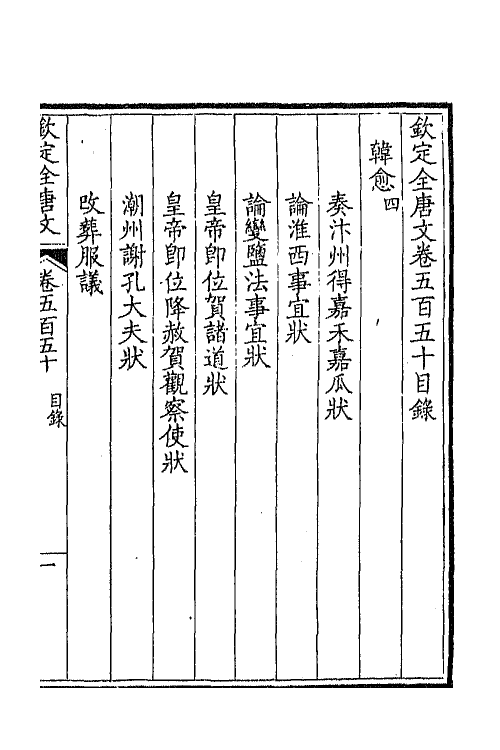 欽定全唐文卷五百五十目錄
韓愈四
奏汴州得嘉禾嘉瓜狀
論淮西事宜狀
論變鹽法事宜狀
皇帝卽位賀諸道狀
皇帝卽位降赦賀觀察使狀
潮州謝孔大夫狀
改葬服議
欽定全唐文 卷五百五十 目錄 一